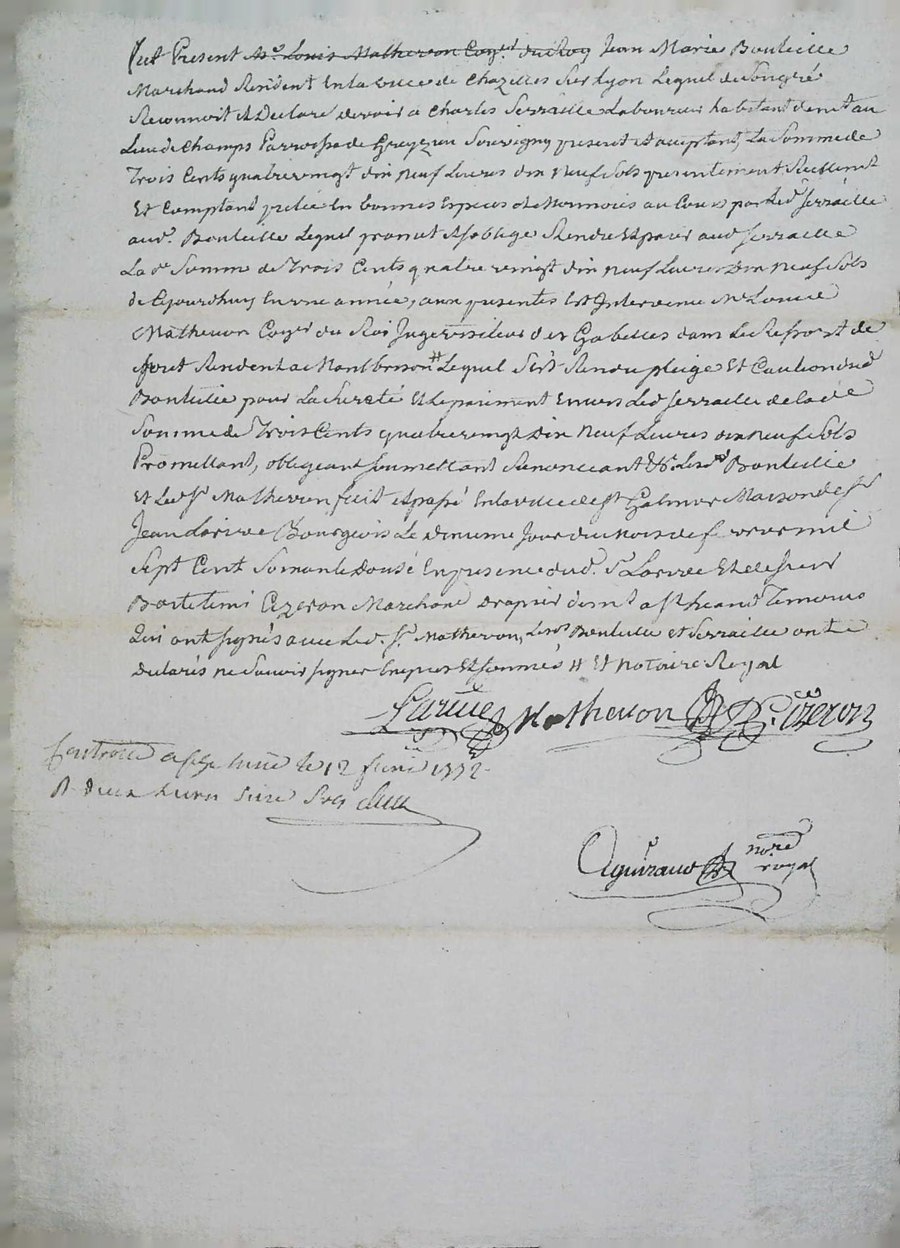 fut Present Mr. Louis Matheron Coner. du Roy Jean Marie Bouteille
Marchand Resident En la ville de Chazelles Sur Lyon Lequel de Son gré
Reconnoit Et Declare devoir a Charles Serraille Laboureur habitant demt. au
Lieu de Champs Parroisse de Grezieu Souvigny present et acceptant, La Somme de
Trois Cents quatre vingt dix neuf Livres dix Neuf Sols presentement Reellement
Et Comptant pretée En bonnes Especes et Monnoies au Cours par Ledt. Serraille
audt. Bouteille Lequel promet Et s'oblige Rendre Et paier aud. Serraille
La de. Somme de Trois Cents quatre vingt dix neuf Livres Dix Neuf Sols
de Cejourdhuy En une année, aux presentes Est Intervenu Mr. Louis
Matheron Coner. du Roi Juge visiteur des Gabelles dans Le Ressort de
foret Resident a Montbrison # Lequel S'est Rendu pleige Et Caution dud.
Bouteille pour La Sureté Et Le paiment Envers Led. Serraille de la de.
Somme de Trois Cents quatre vingt Dix Neuf Livres dix Neuf Sols
Promettant, obligeant Soumettant Renonceant &c. Lesd. Bouteille
Et Led. Sr. Matheron fait et passé En la ville de St. Galmier Maison de Sr.
Jean Larive Bourgeois Le dixieme Jour du Mois de fevrier mil
Sept Cent Soixante Douse En presence dud. Sr. Larive Et de Sieur
Bartelemi Cizeron Marchand Drapier demt. a St. heand Temoins
Qui ont signés avec Led. Sr. Matheron, Lesd. Bouteille et Serraille ont
declarés ne Savoir signer Enquis Et Sommés # Et notaire Royal
Larive Matheron B. Cizeron
le 12 1772
Notre
royal